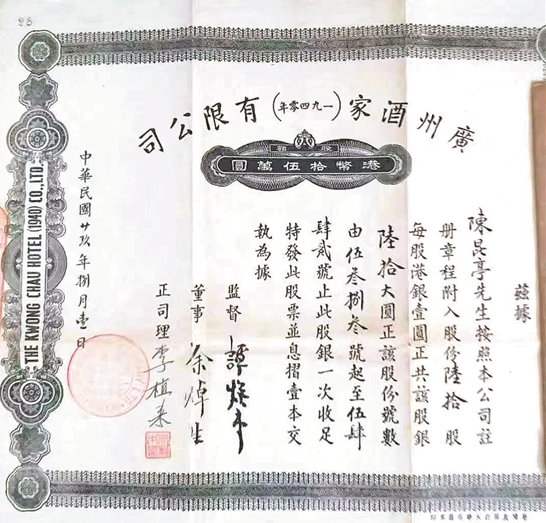 廣州酒家(一九四零年)有限公司
股額
港幣拾伍萬圓
茲據
陳昆亭先生按照本公司註
册章程附入股份陸拾股
每股港銀壹圓正共該股銀
陸拾大圓正該股份號數
由伍叁捌叁號起至伍肆
肆貳號止此股銀一次收足
特發此股票並息摺壹本交
執為據
監督
董事 余焯生
正司理 李植来
中華民國廿玖年捌月壹日
THE KWONG CHAU HOTEL (1940) CO., LTD.